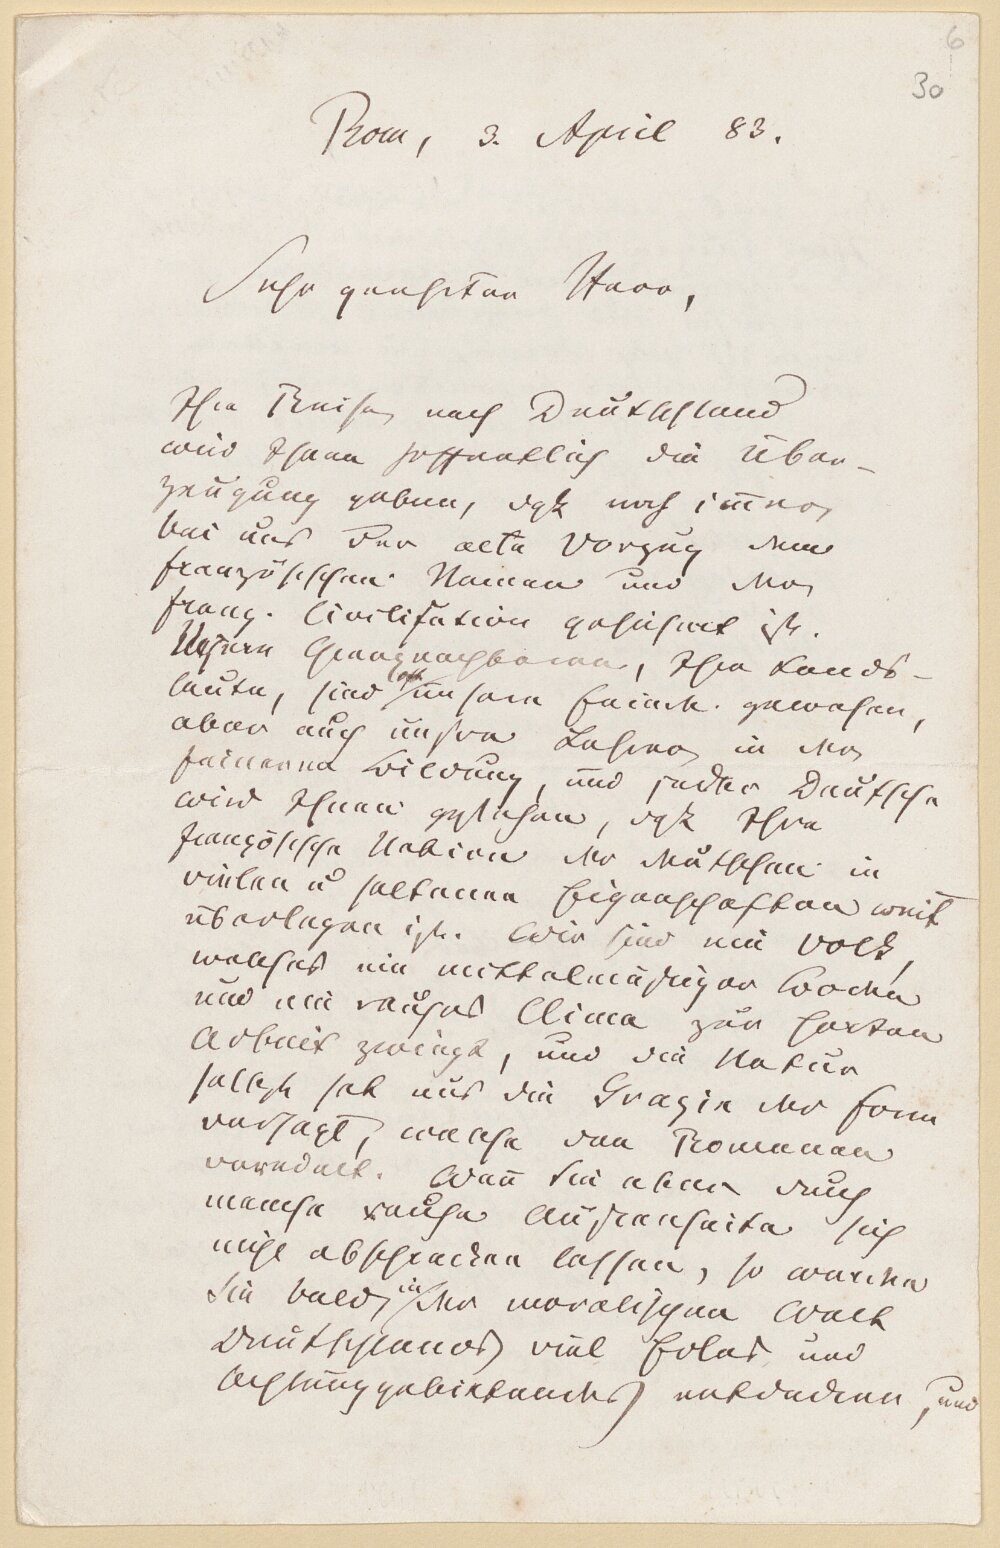 6
30
Rom, 3. April 83.
Sehr geehrter Herr,
Ihre Reise nach Deutschland
wird Ihnen hoffentlich die Über-
zeugung geben, daß noch immer
bei uns der alte Vorzug dem
französischen Namen und der
franz. Civilisation gesichert ist.
Unsere Grenznachbarn, Ihre Lands-
leute, sind oft unsere Feinde gewesen,
aber auch unsre Lehrer in der
feineren Bildung, und jeder Deutsche
wird Ihnen gestehen, daß Ihre
französische Nation der deutschen in
vielen u seltenen Eigenschaften weit
überlegen ist. Wir sind ein Volk,
welches ein mittelmäßiger Boden
und ein rauhes Clima zur harten
Arbeit zwingt, und die Natur
selbst hat uns die Grazie der Form
versagt, welche den Romanen
veredelt. Wenn Sie aber durch
manche rauhe Außenseite sich
nicht abschrecken lassen, so werden
Sie bald in der moralischen Welt
Deutschlands viel Edles und
Achtunggebietendes entdecken, und